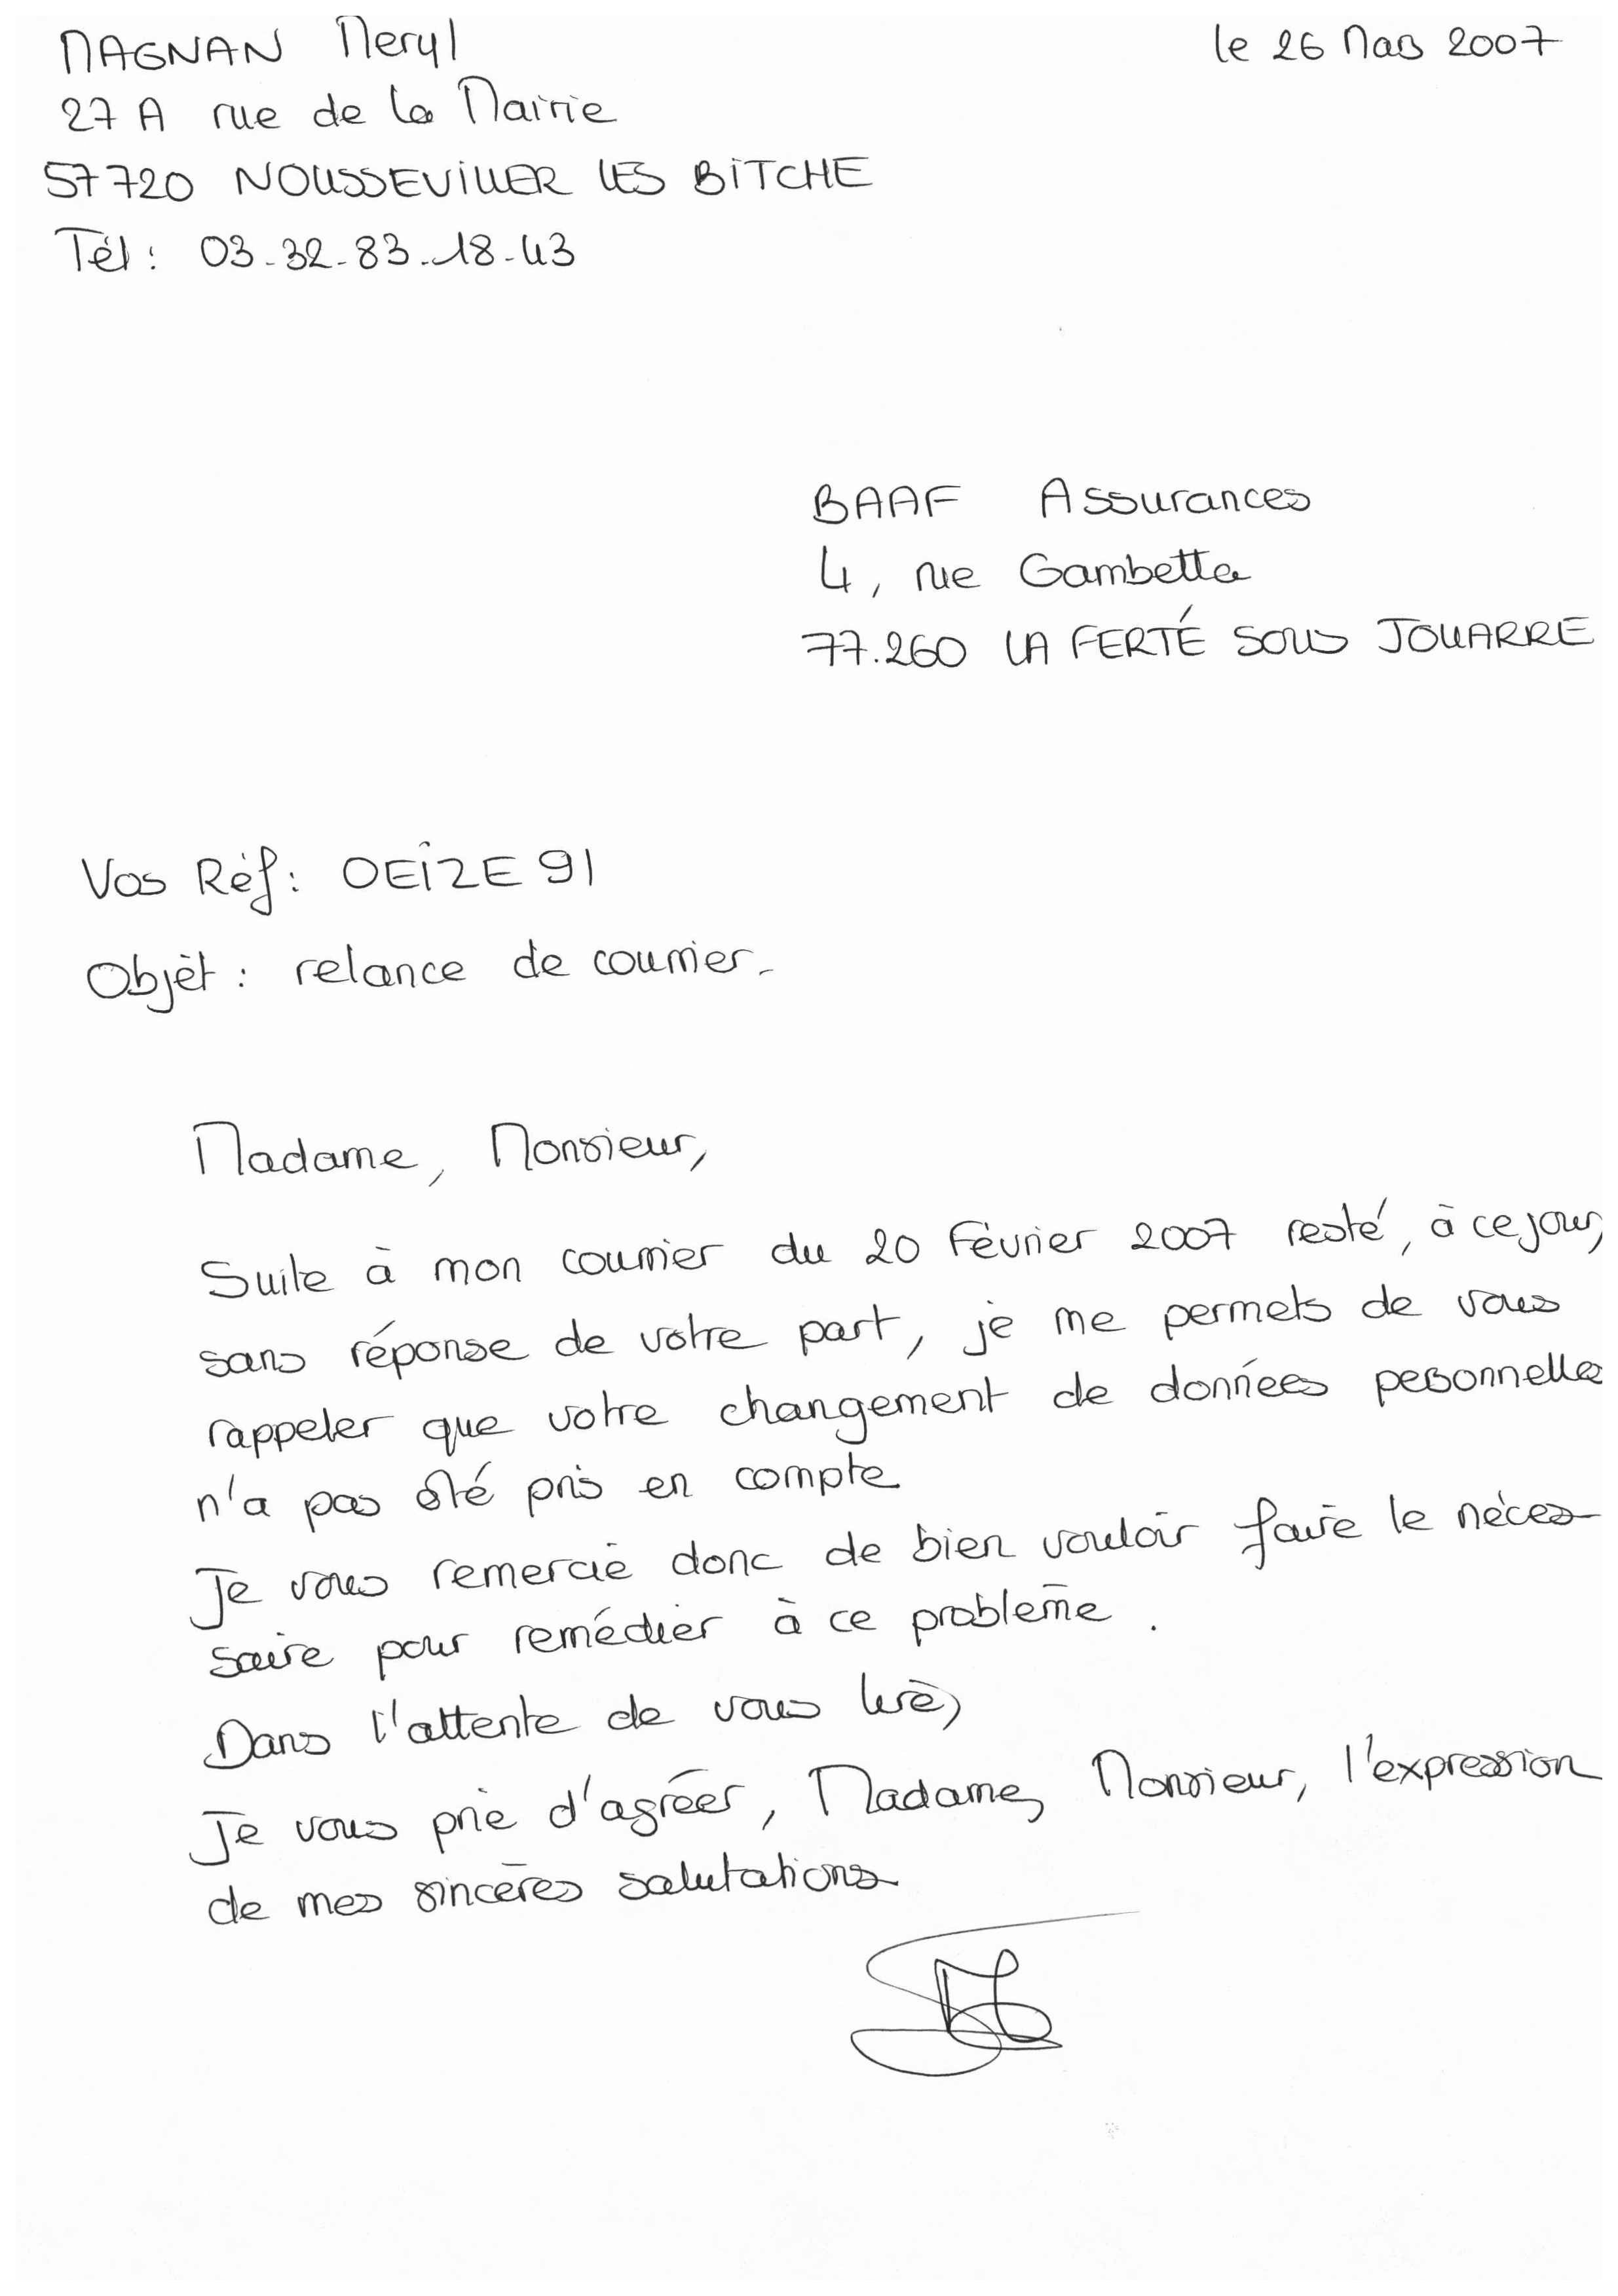 MAGNAN Meryl
le 26 Mars 2007
27 A rue de la Mairie
57720 NOUSSEVILLER LES BITCHE
Tél : 03.32.83.18.43
BAAF Assurances
4, rue Gambetta
77.260 LA FERTÉ SOUS JOUARRE
Vos Réf : OEIZE91
Objet : relance de courrier.
Madame, Monsieur,
Suite à mon courrier du 20 Février 2007 resté, à ce jour,
sans réponse de votre part, je me permets de vous
rappeler que votre changement de données personnelles
n'a pas été pris en compte.
Je vous remercie donc de bien vouloir faire le néces-
saire pour remédier à ce problème.
Dans l'attente de vous lire,
Je vous prie d'agréer, Madame, Monsieur, l'expression
de mes sincères salutations.